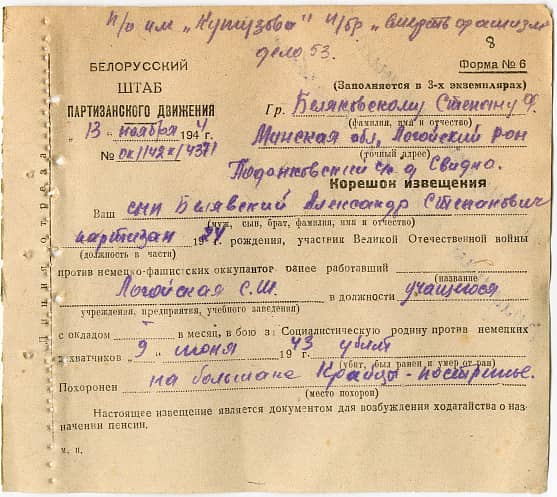 п/о им „Кутузова" п/бр „Смерть фашизму"
дело 53.
8
БЕЛОРУССКИЙ
ШТАБ
ПАРТИЗАНСКОГО ДВИЖЕНИЯ
„ 13 " ноября 194 4 г.
№ ок/142к/4371
Форма № 6
(Заполняется в 3-х экземплярах)
Гр. Беляковскому Степану Ф.
(фамилия, имя и отчество)
Минская обл, Логойский рон
(точный адрес)
с/с д Свидно.
Корешок извещения
Ваш сын Александр Степанович
(муж, сын, брат, фамилия, имя и отчество)
партизан 19 24 г. рождения, участник Великой Отечественной войны
(должность в части)
против немецко-фашистских оккупантов ранее работавший
(название
Логойская С.Ш. в должности учащегося
учреждения, предприятия, учебного заведения)
с окладом в месяц, в бою за Социалистическую родину против немецких
захватчиков „ 9 " июня 19 43 г. убит
(убит, был ранен и умер от ран)
Похоронен на большаке Крайцы -
(место похорон)
Настоящее извещение является документом для возбуждения ходатайства о наз-
начении пенсии.
м. п.
Линия отреза